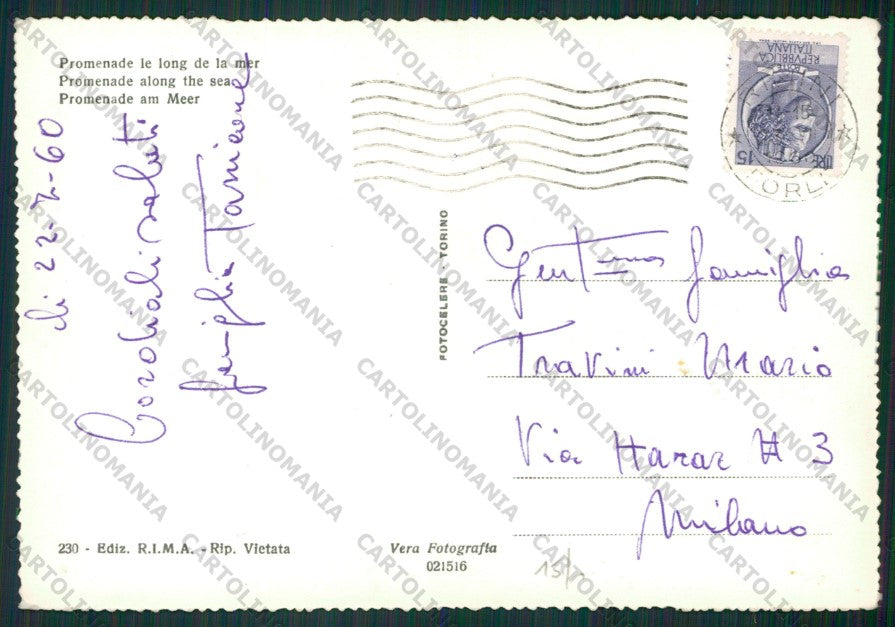 Promenade le long de la mer
Promenade along the sea
Promenade am Meer
di 22-7-60
Cordiali saluti
famiglia
FOTOCELERE - TORINO
REPVBBLICA
ITALIANA
LIRE 15
FORLI
Gent.ma famiglia
Travini Mario
Via Harar # 3
Milano
230 - Ediz. R.I.M.A. - Rip. Vietata
Vera Fotografia
021516
15/
CARTOLINOMANIA